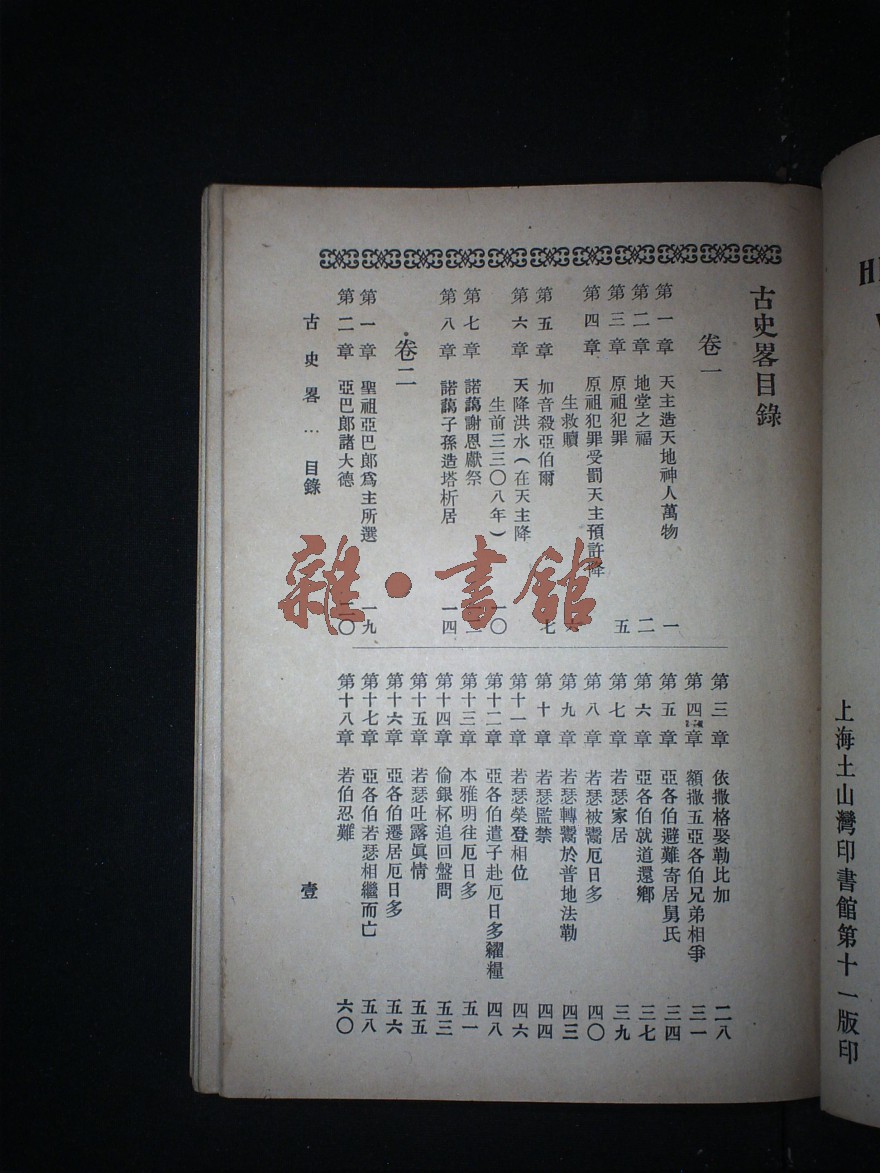 古史畧目錄
卷一
第一章 天主造天地神人萬物 一
第二章 地堂之福 二
第三章 原祖犯罪 五
第四章 原祖犯罪受罰天主預許降
生救贖
第五章 加音殺亞伯爾 七
第六章 天降洪水(在天主降
生前三三〇八年) 一〇
第七章 諾藹謝恩獻祭
第八章 諾藹子孫造塔析居 一四
卷二
第一章 聖祖亞巴郎爲主所選 一九
第二章 亞巴郎諸大德 二〇
第三章 依撒格娶勒比加 二八
第四章 額撒五亞各伯兄弟相爭 三一
第五章 亞各伯避難寄居舅氏 三四
第六章 亞各伯就道還鄉 三七
第七章 若瑟家居 三九
第八章 若瑟被鬻厄日多 四〇
第九章 若瑟轉鬻於普地法勒 四三
第十章 若瑟監禁 四四
第十一章 若瑟榮登相位 四六
第十二章 亞各伯遣子赴厄日多糴糧 四八
第十三章 本雅明往厄日多 五一
第十四章 偷銀杯追回盤問 五三
第十五章 若瑟吐露眞情 五五
第十六章 亞各伯遷居厄日多 五六
第十七章 亞各伯若瑟相繼而亡 五八
第十八章 若伯忍難 六〇
古史畧…目錄 壹
上海土山灣印書館第十一版印
雜·書館